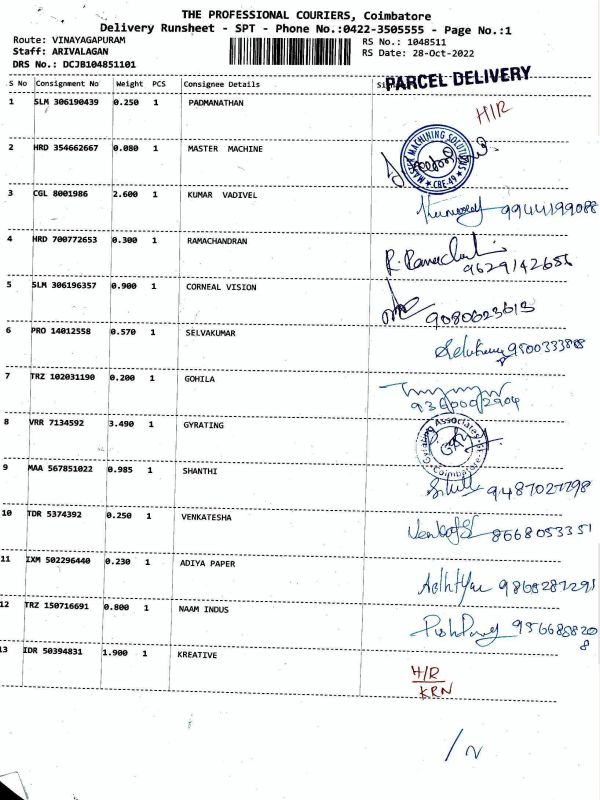 THE PROFESSIONAL COURIERS, Coimbatore
Delivery Runsheet - SPT - Phone No.:0422-3505555 - Page No.:1
Route: VINAYAGAPURAM RS No.: 1048511
Staff: ARIVALAGAN RS Date: 28-Oct-2022
DRS No.: DCJB104851101
PARCEL DELIVERY
S No Consignment No Weight PCS Consignee Details
1 SLM 306190439 0.250 1 PADMANATHAN H/R
2 HRD 354662667 0.080 1 MASTER MACHINE
MACHINING SOLUTIONS
CBE-49
3 CGL 8001986 2.600 1 KUMAR VADIVEL
9944199088
4 HRD 700772653 0.300 1 RAMACHANDRAN
9629142656
5 SLM 306196357 0.900 1 CORNEAL VISION
9080623613
6 PRO 14012558 0.570 1 SELVAKUMAR
7 TRZ 102031190 0.200 1 GOHILA
8 VRR 7134592 3.490 1 GYRATING
Gyrating Associates
Coimbatore
9 MAA 567851022 0.985 1 SHANTHI
10 TDR 5374392 0.250 1 VENKATESHA
8668053351
11 IXM 502296440 0.230 1 ADIYA PAPER
12 TRZ 150716691 0.800 1 NAAM INDUS
13 IDR 50394831 1.900 1 KREATIVE
H/R
KRN